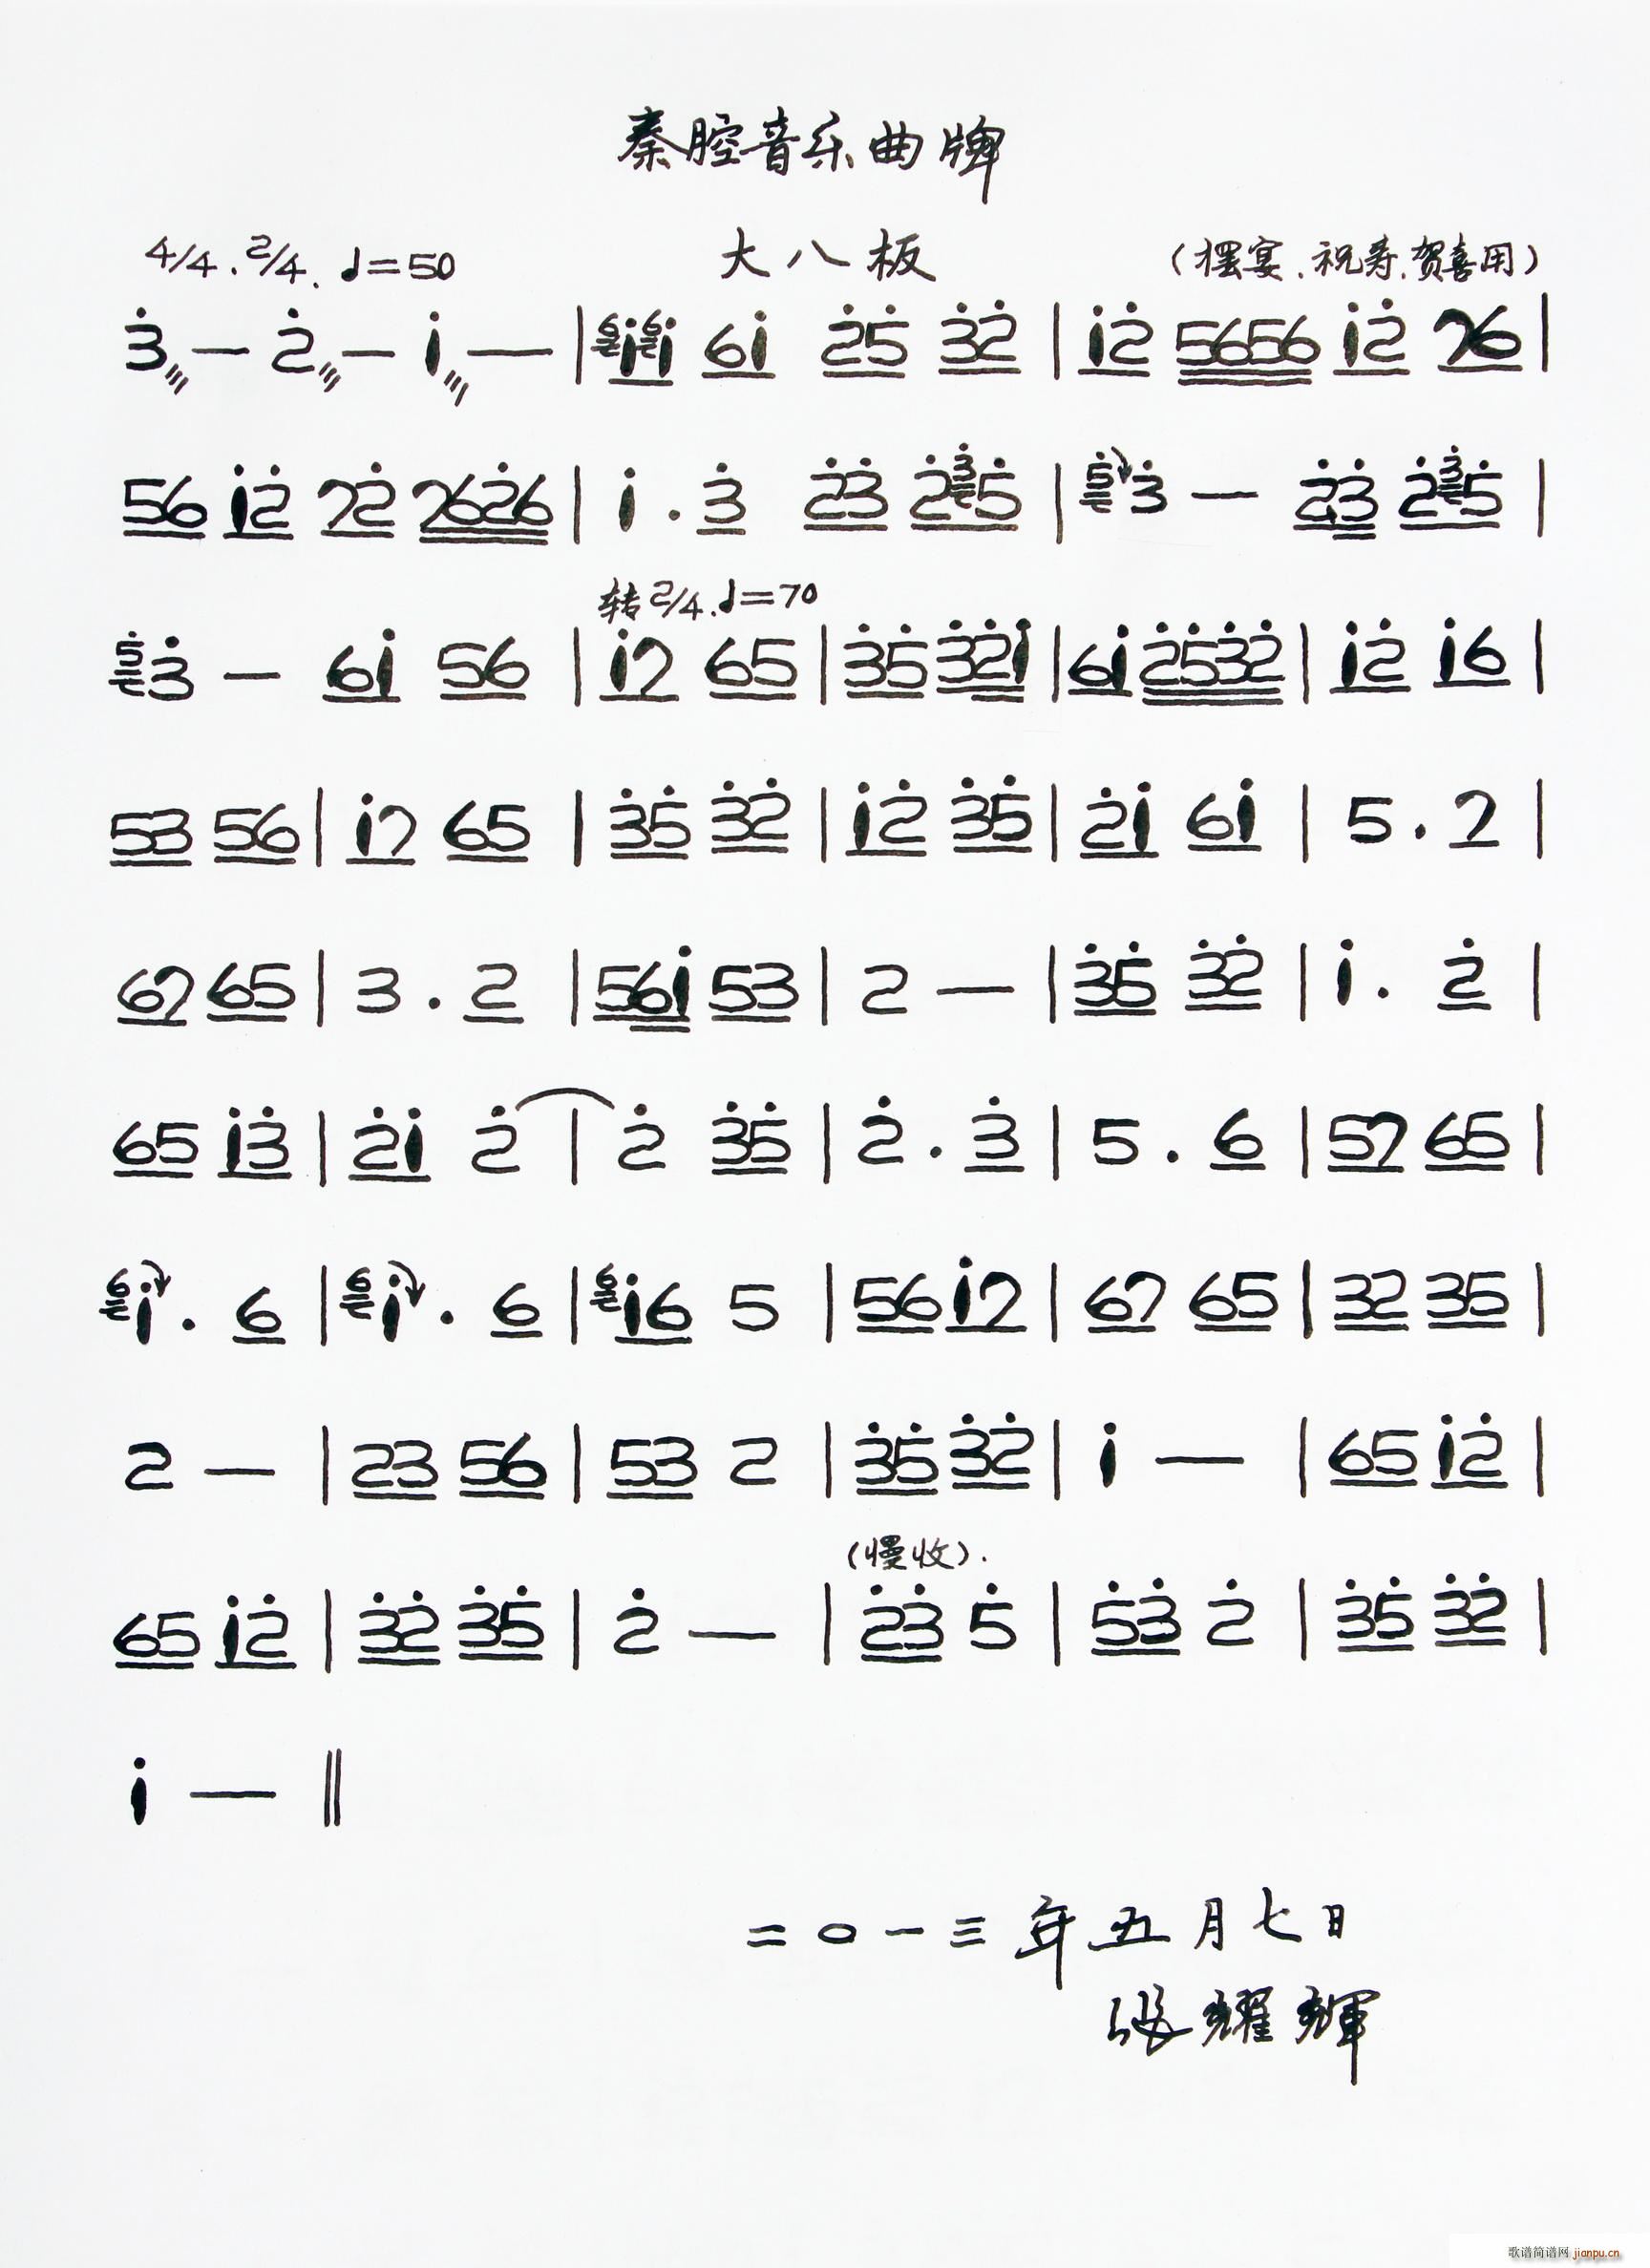 秦腔音乐曲牌
4/4. 2/4. ♩=50 大八板 (摆宴.祝寿.贺喜用)
3̇ — 2̇ — i — | 6i6i 6i 2̇5̇ 3̇2̇ | i2̇ 5656 i2̇ 76 |
56 i2̇ 72̇ 762̇6 | i . 3̇ 2̇3̇ 2̇3̇5̇ | 5̇3̇ — 2̇3̇ 2̇3̇5̇ |
转2/4. ♩=70
5̇3̇ — 6i 56 | i7 65 | 3̇5̇ 3̇2̇i | 6i 2̇5̇3̇2̇ | i2̇ i6 |
53 56 | i7 65 | 3̇5̇ 3̇2̇ | i2̇ 3̇5̇ | 2̇i 6i | 5 . 7 |
67 65 | 3 . 2 | 56i 53 | 2 — | 3̇5̇ 3̇2̇ | i . 2̇ |
65 i3̇ | 2̇i 2̇ | 2̇ 3̇5̇ | 2̇ . 3̇ | 5 . 6 | 57 65 |
6i . 6 | 6i . 6 | 6i6 5 | 56 i7 | 67 65 | 32 35 |
2 — | 23 56 | 53 2 | 3̇5̇ 3̇2̇ | i — | 65 i2̇ |
(慢收).
65 i2̇ | 3̇2̇ 3̇5̇ | 2̇ — | 2̇3̇ 5̇ | 5̇3̇ 2̇ | 3̇5̇ 3̇2̇ |
i — ‖
二〇一三年五月七日
张耀辉
歌谱简谱网 jianpu.cn